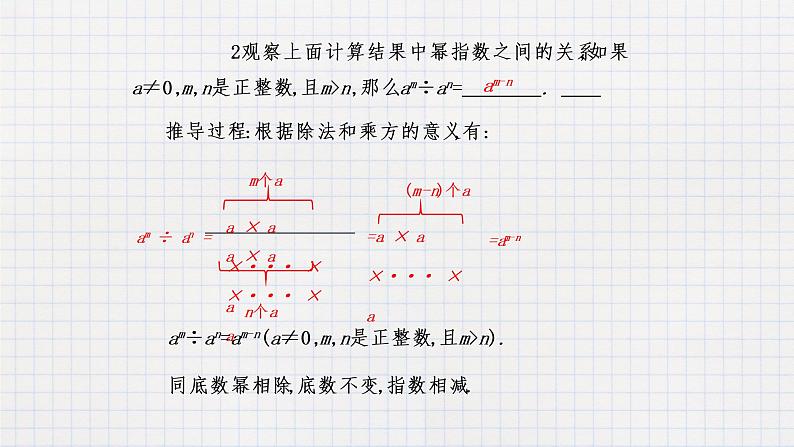 2观察上面计算结果中幂指数之间的关系,如果
a≠0,m,n是正整数,且m>n,那么aᵐ÷aⁿ= aᵐ⁻ⁿ .
推导过程:根据除法和乘方的意义,有:
m个a
(m-n)个a
aᵐ ÷ aⁿ =
a × a
a × a
×··· ×
×··· ×
a
a
n个a
=a × a
×··· ×
a
=aᵐ⁻ⁿ
aᵐ÷aⁿ=aᵐ⁻ⁿ(a≠0,m,n是正整数,且m>n).
同底数幂相除,底数不变,指数相减.